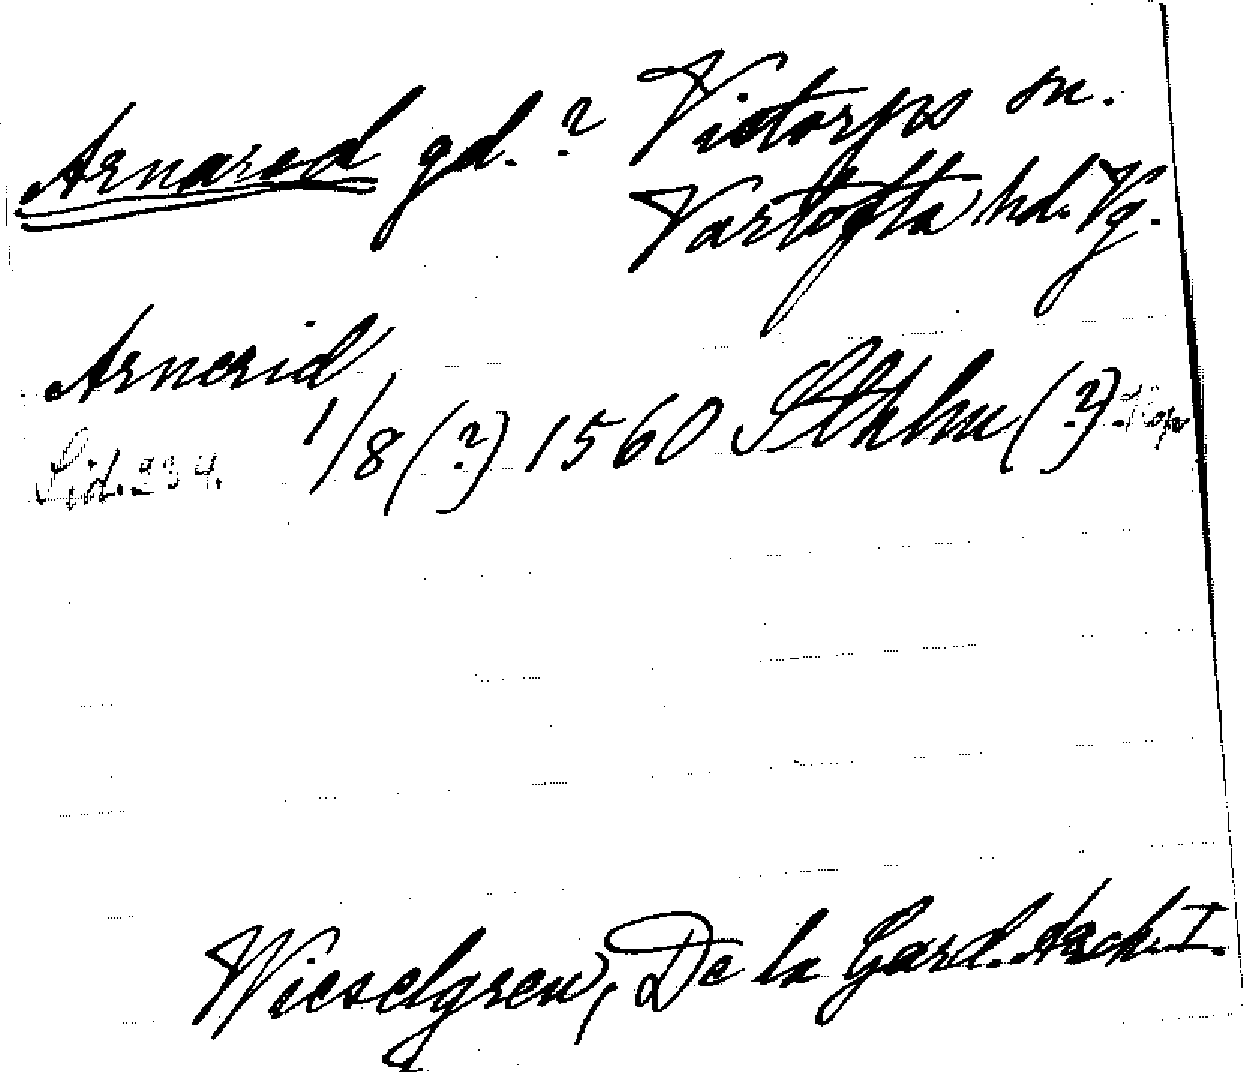 Arnarod gd. ? Victorps sn.
Vartofta hd. Vg.
Arnerid
1/8 (?) 1560 Sthlm (?) Kop
Sid. 234.
Wieselgren, De la Gard. Arch. I.